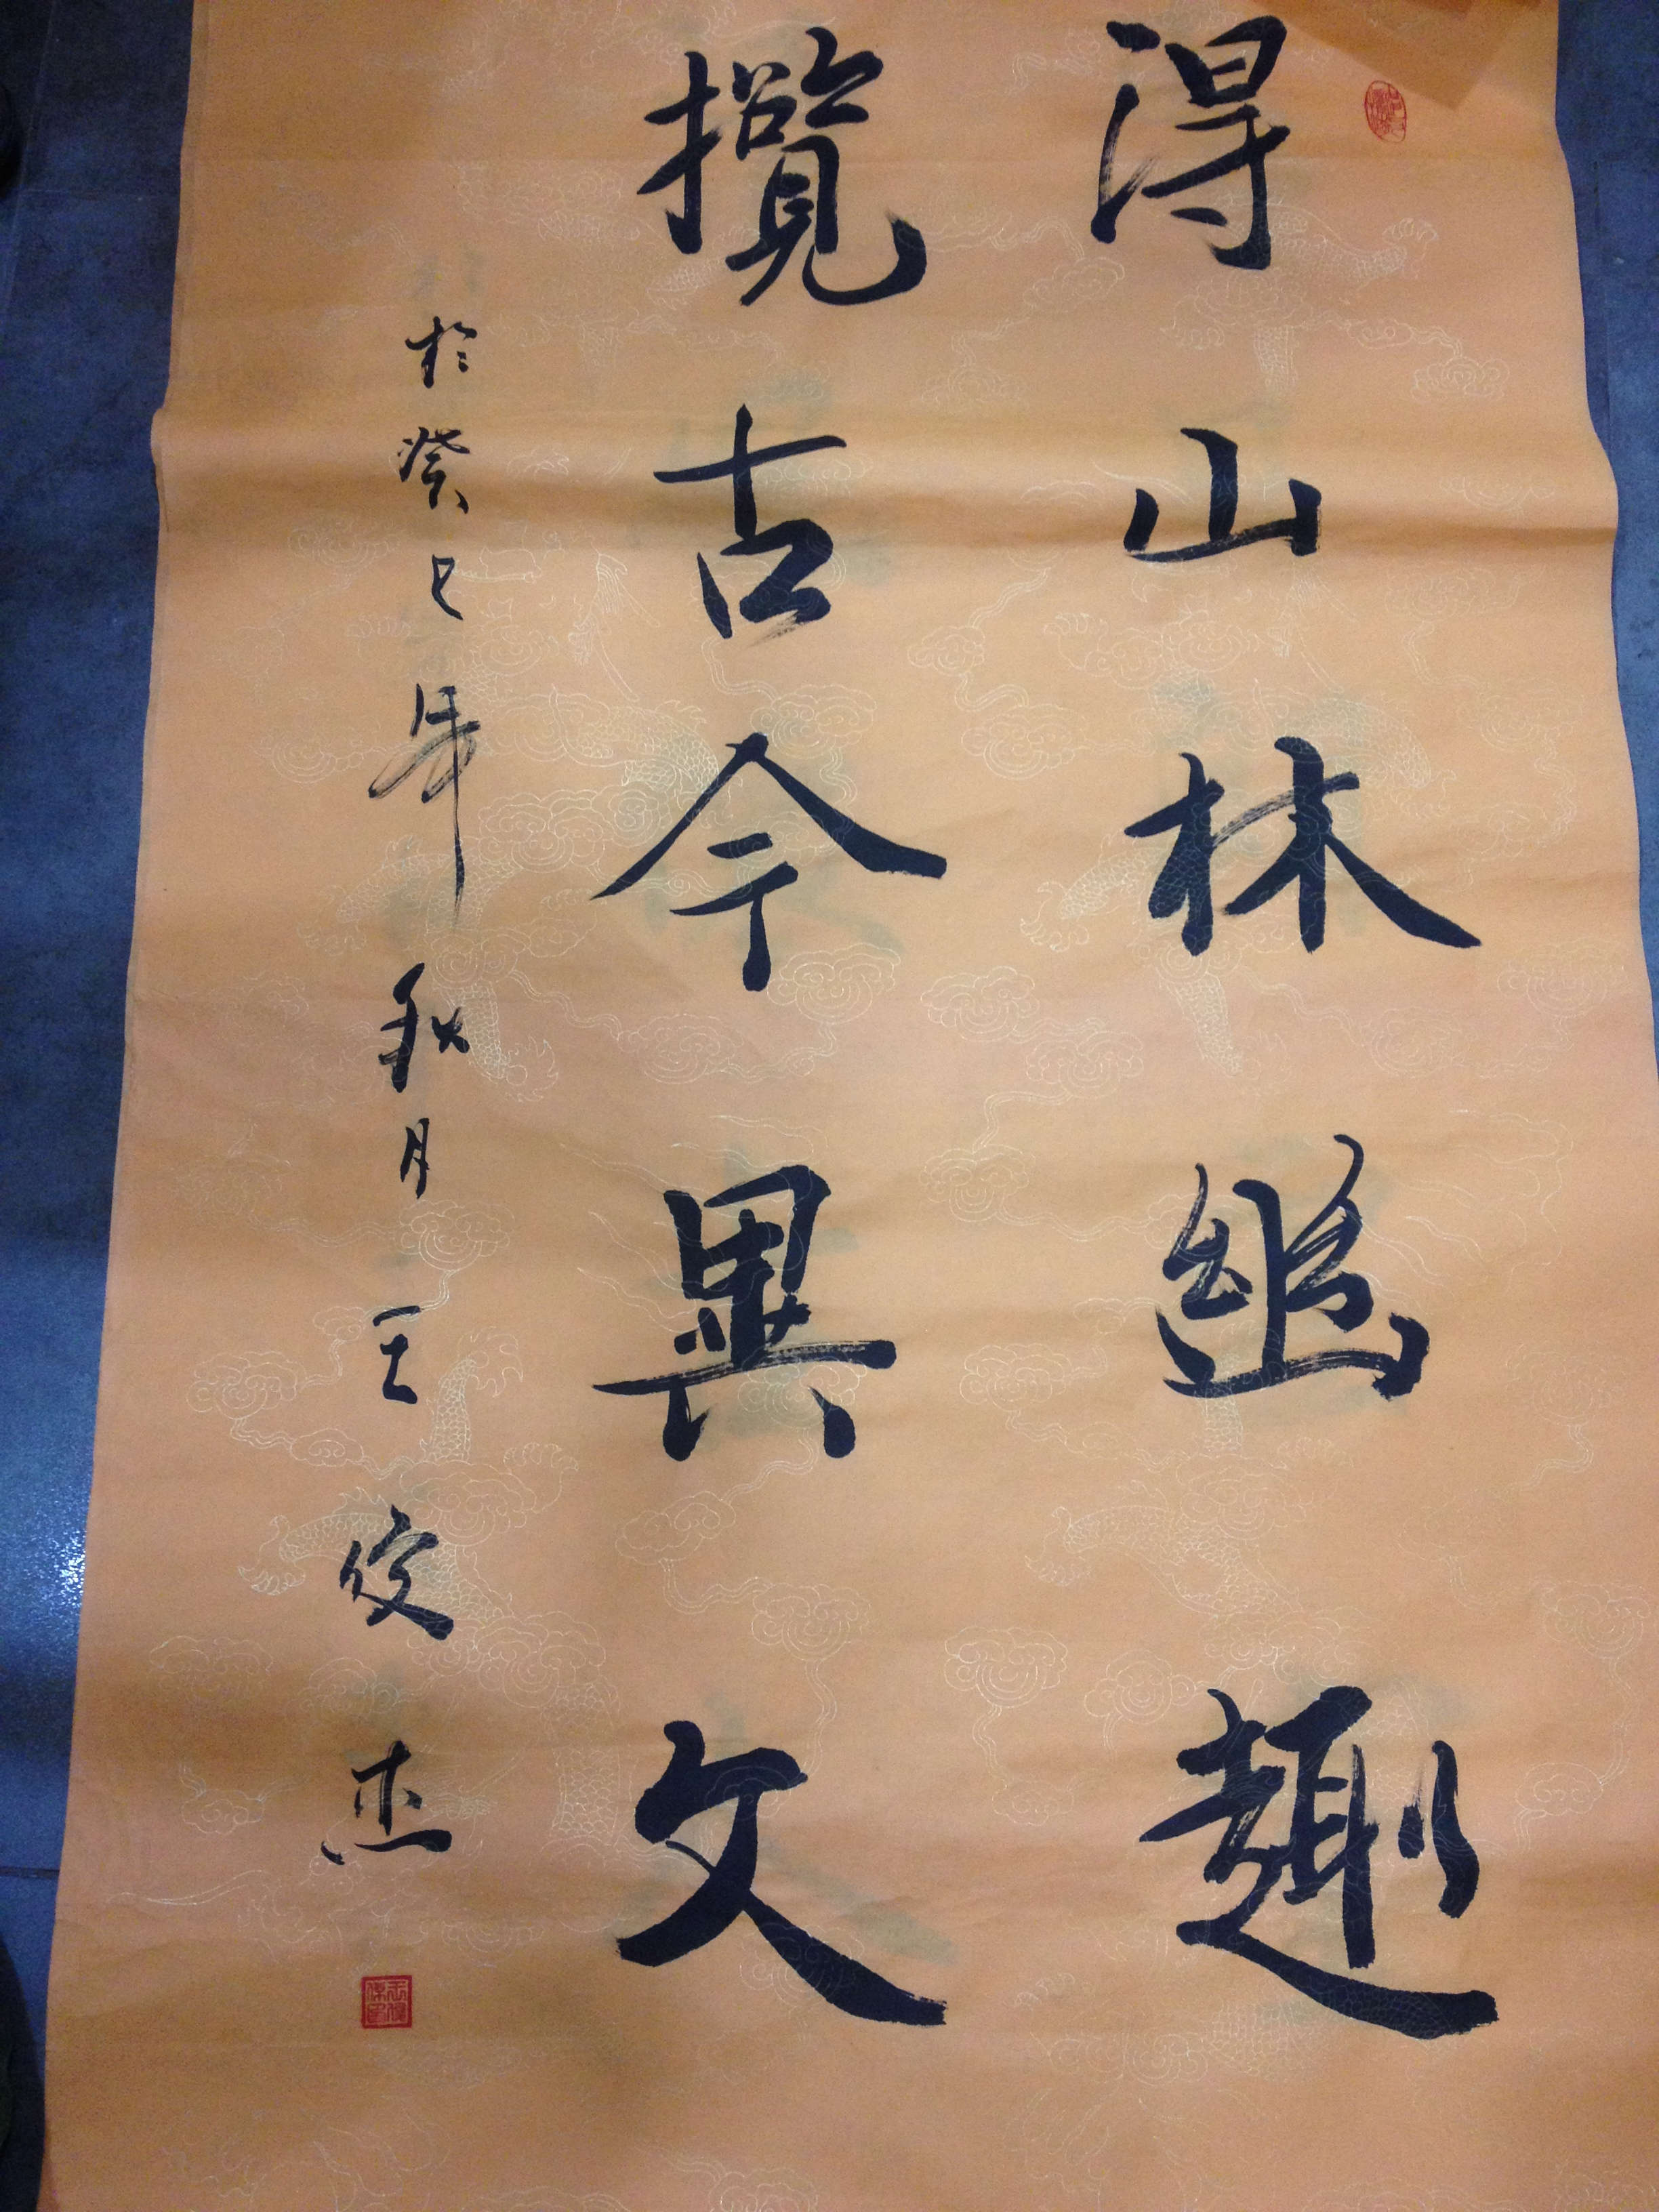 得山林幽趣
攬古今異文
於癸巳年秋月王俊杰